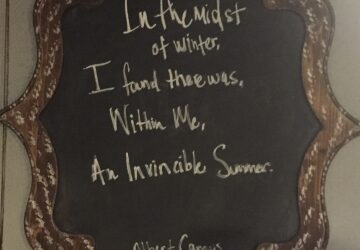 In the Midst
of Winter,
I found there was,
Within Me,
An Invincible Summer.
Albert Camus